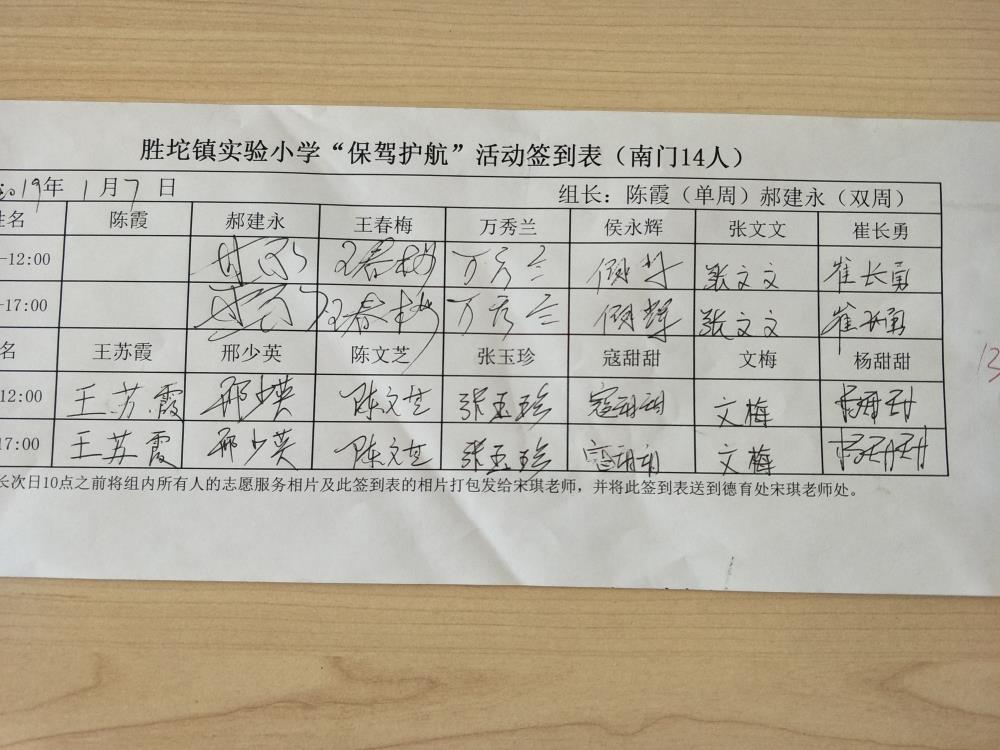 胜坨镇实验小学“保驾护航”活动签到表（南门14人）
2019年 1月7日 组长：陈霞（单周）郝建永（双周）
姓名 陈霞 郝建永 王春梅 万秀兰 侯永辉 张文文 崔长勇
-12:00 王春梅 万秀兰 张文文 崔长勇
-17:00 王春梅 万秀兰 张文文 崔长勇
名 王苏霞 邢少英 陈文芝 张玉珍 寇甜甜 文梅 杨甜甜
12:00 王苏霞 邢少英 陈文芝 张玉珍 寇甜甜 文梅 杨甜甜
17:00 王苏霞 邢少英 陈文芝 张玉珍 寇甜甜 文梅 杨甜甜
长次日10点之前将组内所有人的志愿服务相片及此签到表的相片打包发给宋琪老师，并将此签到表送到德育处宋琪老师处。
13